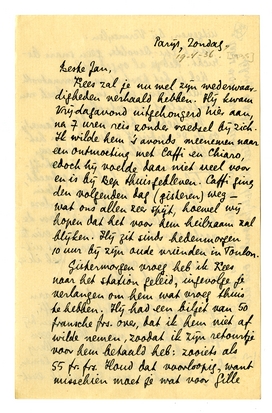 Parijs, Zondag,
19-4-36
Beste Jan,
Kees zal je nu wel zijn wederwaar-
digheden verhaald hebben. Hij kwam
Vrijdagavond uitgehongerd hier aan,
na 7 uren reis zonder voedsel bij zich.
Ik wilde hem 's avonds meenemen naar
een ontmoeting met Caffi en Chiaro,
doch hij voelde daar niet veel voor
en is bij Bep thuisgebleven. Caffi ging
den volgenden dag (gisteren) weg —
wat ons allen zeer spijt, hoewel wij
hopen dat het voor hem heilzaam zal
blijken. Hij zit sinds hedenmorgen
10 uur bij zijn oude vrienden in Toulon.
Gistermorgen vroeg heb ik Kees
naar het station geleid, ingevolge je
verlangen om hem wat vroeg thuis
te hebben. Hij had een biljet van 50
fransche frs. over, dat ik hem niet af
wilde nemen, zoodat ik zijn retourtje
voor hem betaald heb: zooiets als
55 fr. frs. Houd dat voorloopig, want
misschien moet je wat voor Gille